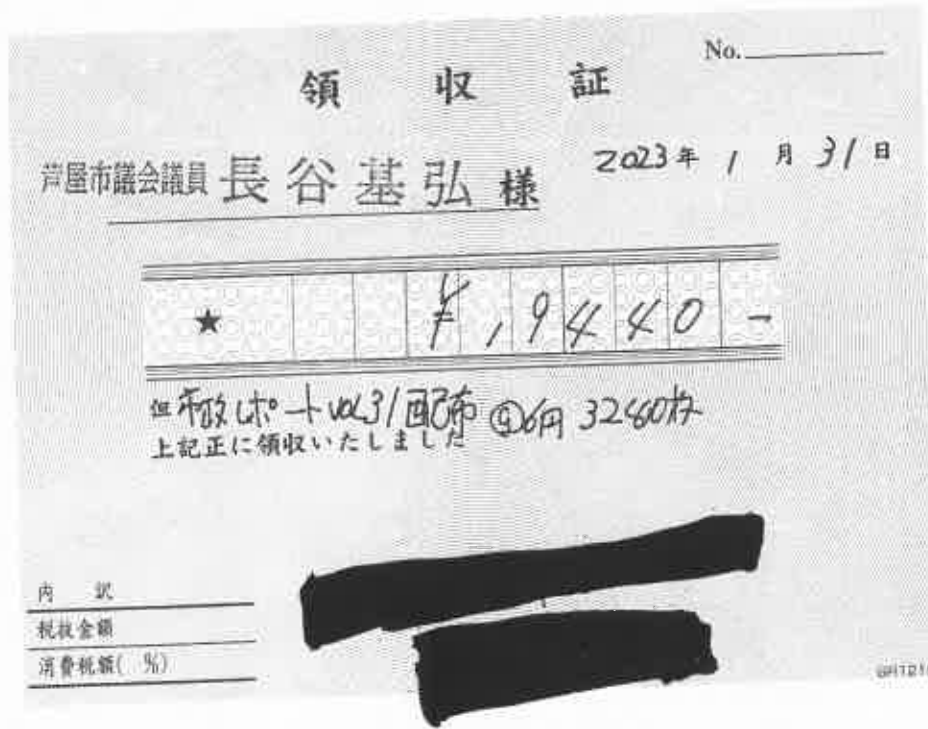 No.
領収証
芦屋市議会議員 長谷基弘 様
2023年 1月 31日
★ ¥19440-
但 市政レポートvol31配布 @6円 3240枚
上記正に領収いたしました
内 訳
税抜金額
消費税額( %)